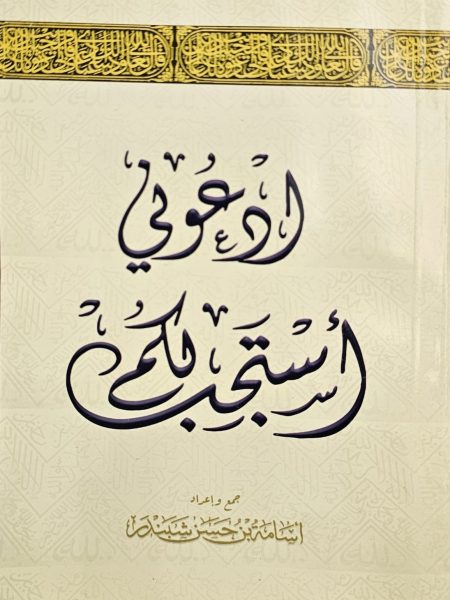 ادعوني
أستجب لكم
جمع وإعداد
أسامة بن حسن شبندر